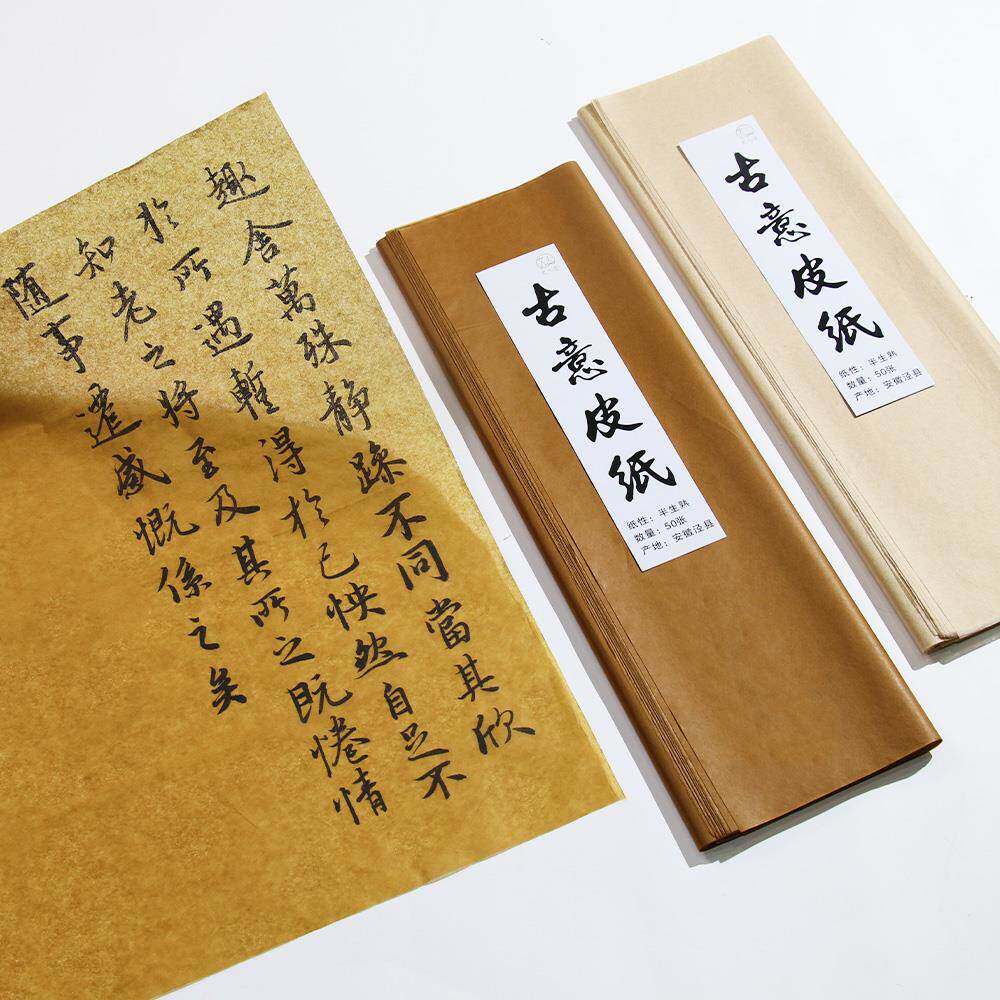 趣舍萬殊静躁不同當其欣
於所遇暫得於己怏然自足不
知老之將至及其所之既惓情
随事遷感慨係之矣
古意皮纸
纸性：半生熟
数量：50张
产地：安徽泾县
古意皮纸
纸性：半生熟
数量：50张
产地：安徽泾县